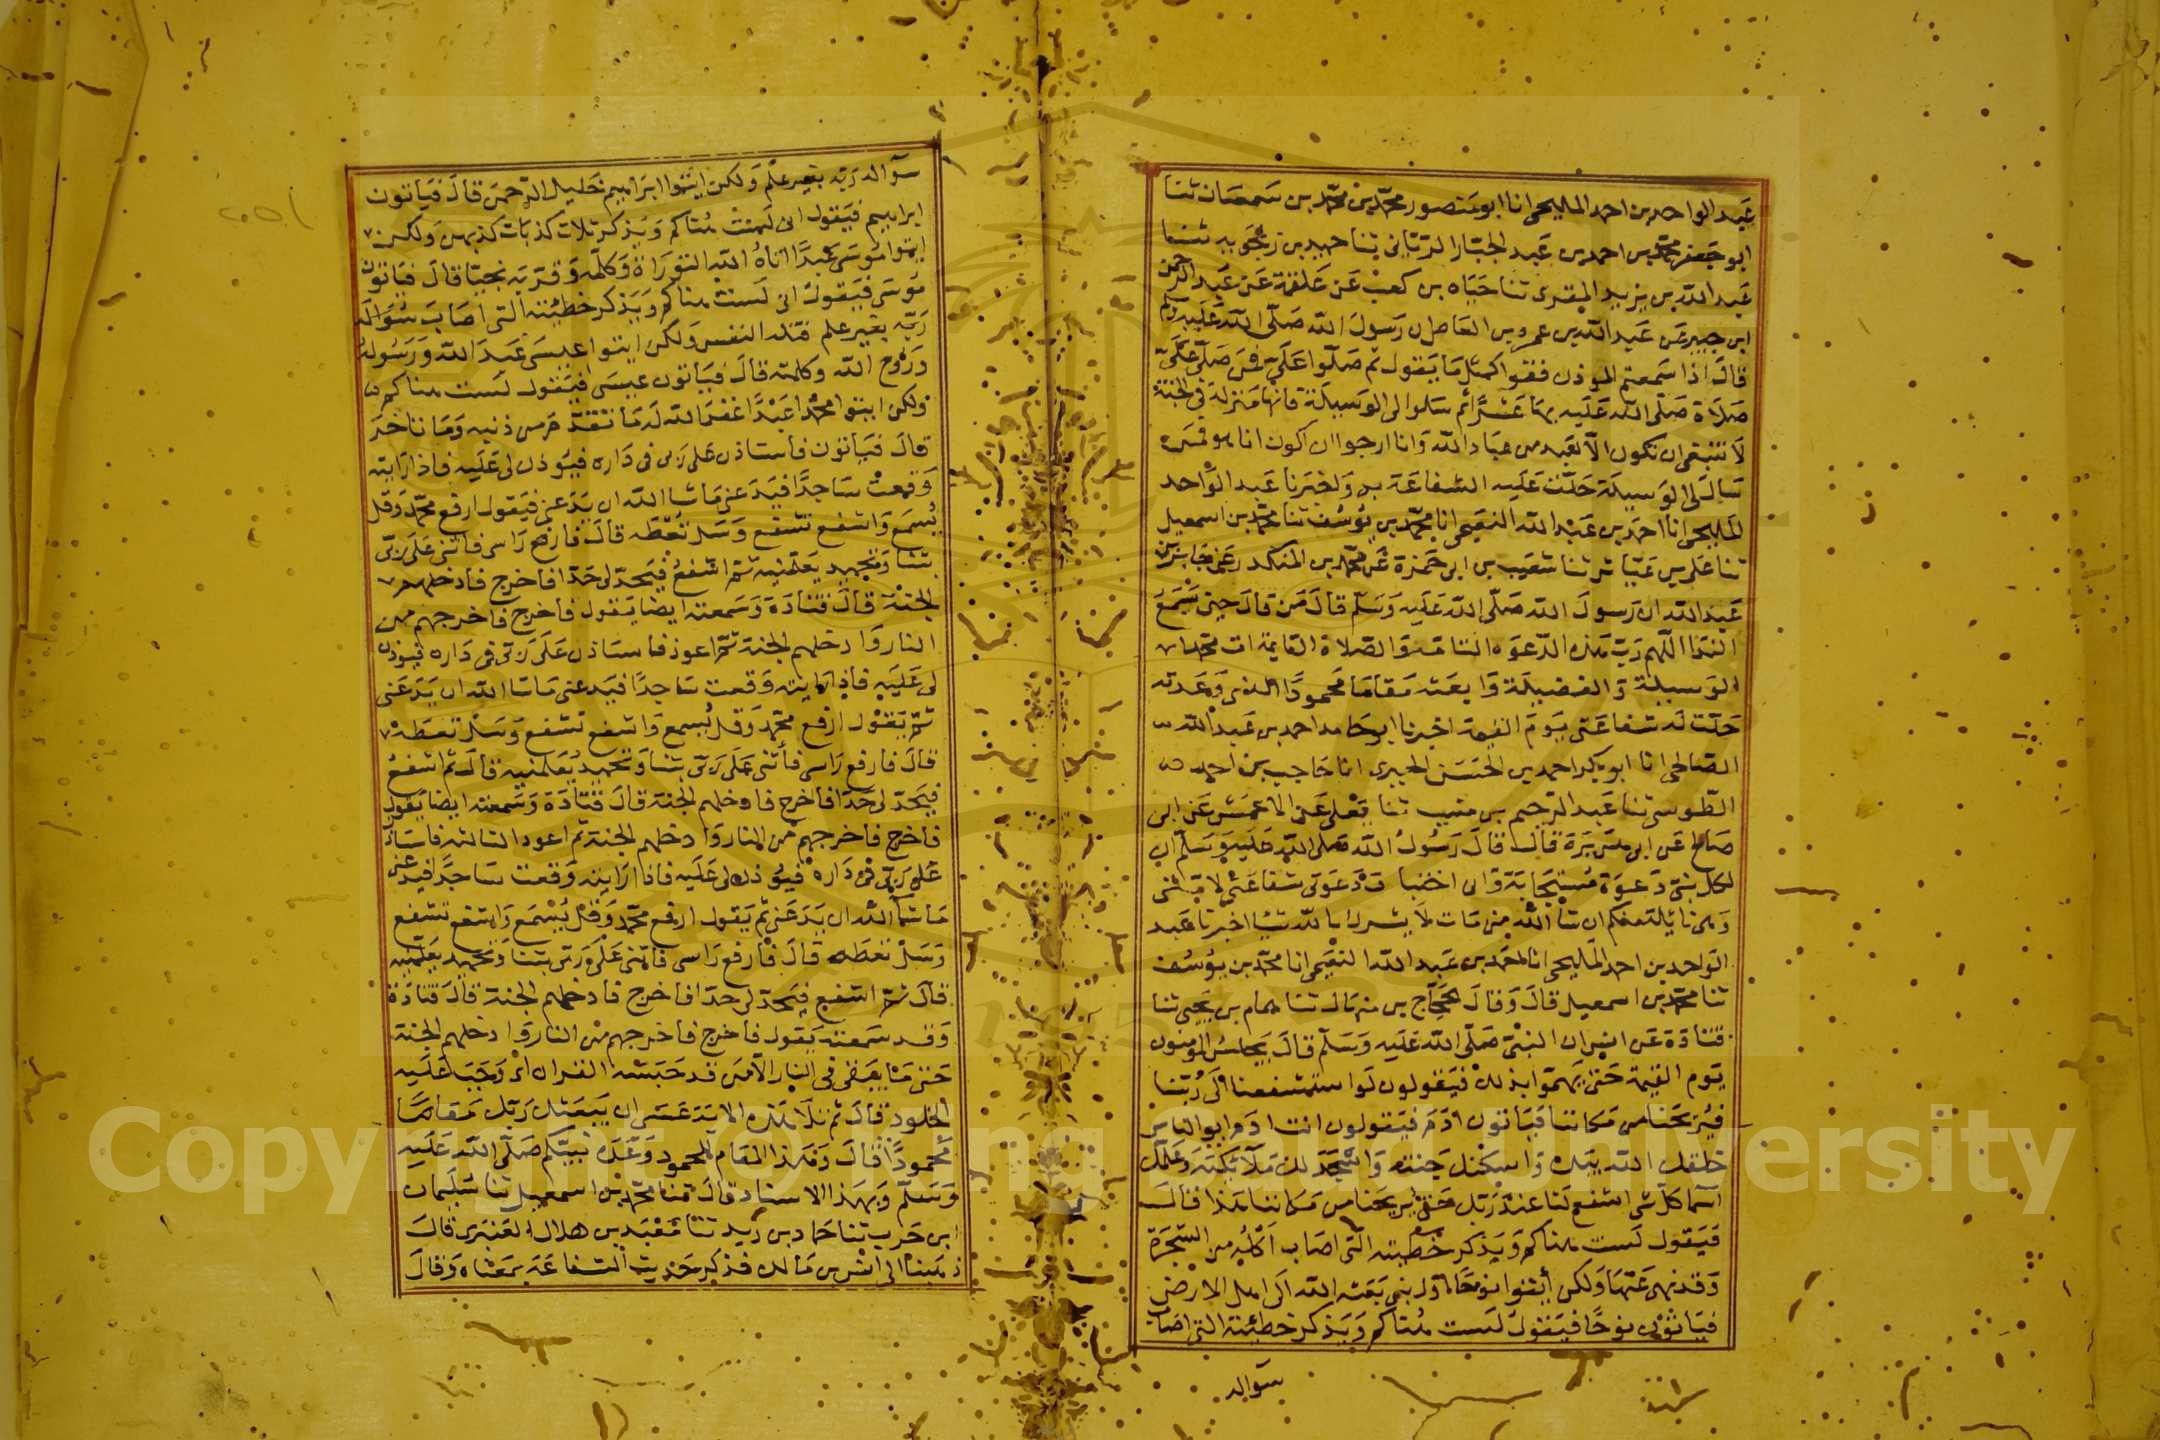 عبد الواحد بن احمد المليحى انا ابو منصور محمد بن محمد بن سمعان ثنا
ابو جعفر محمد بن احمد بن عبد الجبار الريانى ثنا حميد بن زنجويه ثنا
عبد الله بن يزيد المقرى ثنا حياه بن كعب عن علقمة عن عبد الرحمن
ابن جبير عن عبد الله بن عمرو بن العاص ان رسول الله صلى الله عليه وسلم
قال اذا سمعتم الموذن فقولوا كمثل ما يقول ثم صلوا على فمن صلى على
صلاة صلى الله عليه بها عشرا ثم سلوا لى الوسيلة فانها منزلة فى الجنة
لا تنبغى ان تكون الا لعبد من عباد الله وانا ارجوا ان اكون انا هو فمن
سال لى الوسيلة حلت عليه الشفاعة به واخبرنا عبد الواحد
المليحى انا احمد بن عبد الله النعيمى انا محمد بن يوسف ثنا محمد بن اسمعيل
ثنا على بن عياش ثنا شعيب بن ابى حمزة عن محمد بن المنكدر عن جابر بن
عبد الله ان رسول الله صلى الله عليه وسلم قال من قال حين سمع
الندا اللهم رب هذه الدعوه التامة والصلاة القايمة ات محمدا
الوسيلة والفضيلة وابعثه مقاما محمودا الذى وعدته
حلت له شفاعتى يوم القيمة اخبرنا ابو حامد احمد بن عبد الله
الصالحى انا ابو بكر احمد بن الحسن الحيرى انا حاجب بن احمد
الطوسى ثنا عبد الرحيم بن منيب ثنا يعلى عن الاعمش عن ابى
صالح عن ابى هريرة قال قال رسول الله صلى الله عليه وسلم ان
لكل نبى دعوة مستجابة وانى اختبات دعوتى شفاعتى لامتى
وهى نايلة منكم ان شا الله من مات لا يشرك بالله شيا اخبرنا عبد
الواحد بن احمد المليحى انا احمد بن عبد الله النعيمى انا محمد بن يوسف
ثنا محمد بن اسمعيل قال وقال حجاج بن منهال ثنا همام بن يحيى ثنا
قتادة عن انس ان النبى صلى الله عليه وسلم قال يحبس المومنون
يوم القيمة حتى يهموا بذلك فيقولون لو استشفعنا الى ربنا
فيريحنا من مكاننا فياتون ادم فيقولون انت ادم ابو الناس
خلقك الله بيده واسكنك جنته واسجد لك ملايكته وعلمك
اسما كل شى اشفع لنا عند ربك حتى يريحنا من مكاننا هذا قال
فيقول لست هناكم ويذكر خطيته التى اصاب اكله من الشجرة
وقد نهى عنها ولكن ايتوا نوحا اول نبى بعثه الله الى اهل الارض
فياتون نوحا فيقول لست هناكم ويذكر خطيئته التى اصاب
سواله
سواله ربه بغير علم ولكن ايتوا ابراهيم خليل الرحمن قال فياتون
ابراهيم فيقول انى لست هناكم ويذكر ثلاث كذبات كذبهن ولكن
ايتوا موسى عبدا اتاه الله التوراة وكلمه وقربه نجيا قال فياتون
موسى فيقول انى لست هناكم ويذكر خطيئته التى اصاب سواله
ربه بغير علم قتله النفس ولكن ايتوا عيسى عبد الله ورسوله
وروح الله وكلمته قال فياتون عيسى فيقول لست هناكم
ولكن ايتوا محمدا عبدا غفر الله له ما تقدم من ذنبه وما تاخر
قال فياتون فاستاذن على ربى فى داره فيوذن لى عليه فاذا رايته
وقعت ساجدا فيدعنى ما شا الله ان يدعنى فيقول ارفع محمد وقل
يسمع واشفع تشفع وسل تعطه قال فارفع راسى فاثنى على ربى
بثنا وتحميد يعلمنيه ثم اشفع فيحد لى حدا فاخرج فادخلهم
الجنة قال قتادة وسمعته ايضا يقول فاخرج فاخرجهم من
النار وادخلهم الجنة ثم اعود فاستاذن على ربى فى داره فيوذن
لى عليه فاذا رايته وقعت ساجدا فيدعنى ما شا الله ان يدعنى
ثم يقول ارفع محمد وقل يسمع واشفع تشفع وسل تعطه
قال فارفع راسى فأثنى على ربى بثنا وتحميد يعلمنيه قال ثم اشفع
فيحد لى حدا فاخرج فادخلهم الجنة قال قتادة وسمعته ايضا يقول
فاخرج فاخرجهم من النار وادخلهم الجنة ثم اعود الثالثه فاستاذن
على ربى فى داره فيوذن لى عليه فاذا رايته وقعت ساجدا فيدعنى
ما شا الله ان يدعنى ثم يقول ارفع محمد وقل يسمع واشفع تشفع
وسل تعطه قال فارفع راسى فاثنى على ربى بثنا وتحميد يعلمنيه
قال ثم اشفع فيحد لى حدا فاخرج فادخلهم الجنة قال قتادة
وقد سمعته يقول فاخرج فاخرجهم من النار وادخلهم الجنة
حتى ما يبقى فى النار الا من قد حبسه القران اى وجب عليه
الخلود قال ثم تلا هذه الاية عسى ان يبعثك ربك مقاما
محمودا قال وهذا المقام المحمود وعده نبيكم صلى الله عليه
وسلم وبهذا الاسناد قال ثنا محمد بن اسمعيل ثنا سليمان
ابن حرب ثنا حماد بن زيد ثنا معبد بن هلال العنبرى قال
ذهبنا الى انس بن مالك فذكر حديث الشفاعة بمعناه وقال
Copyright © King Saud University